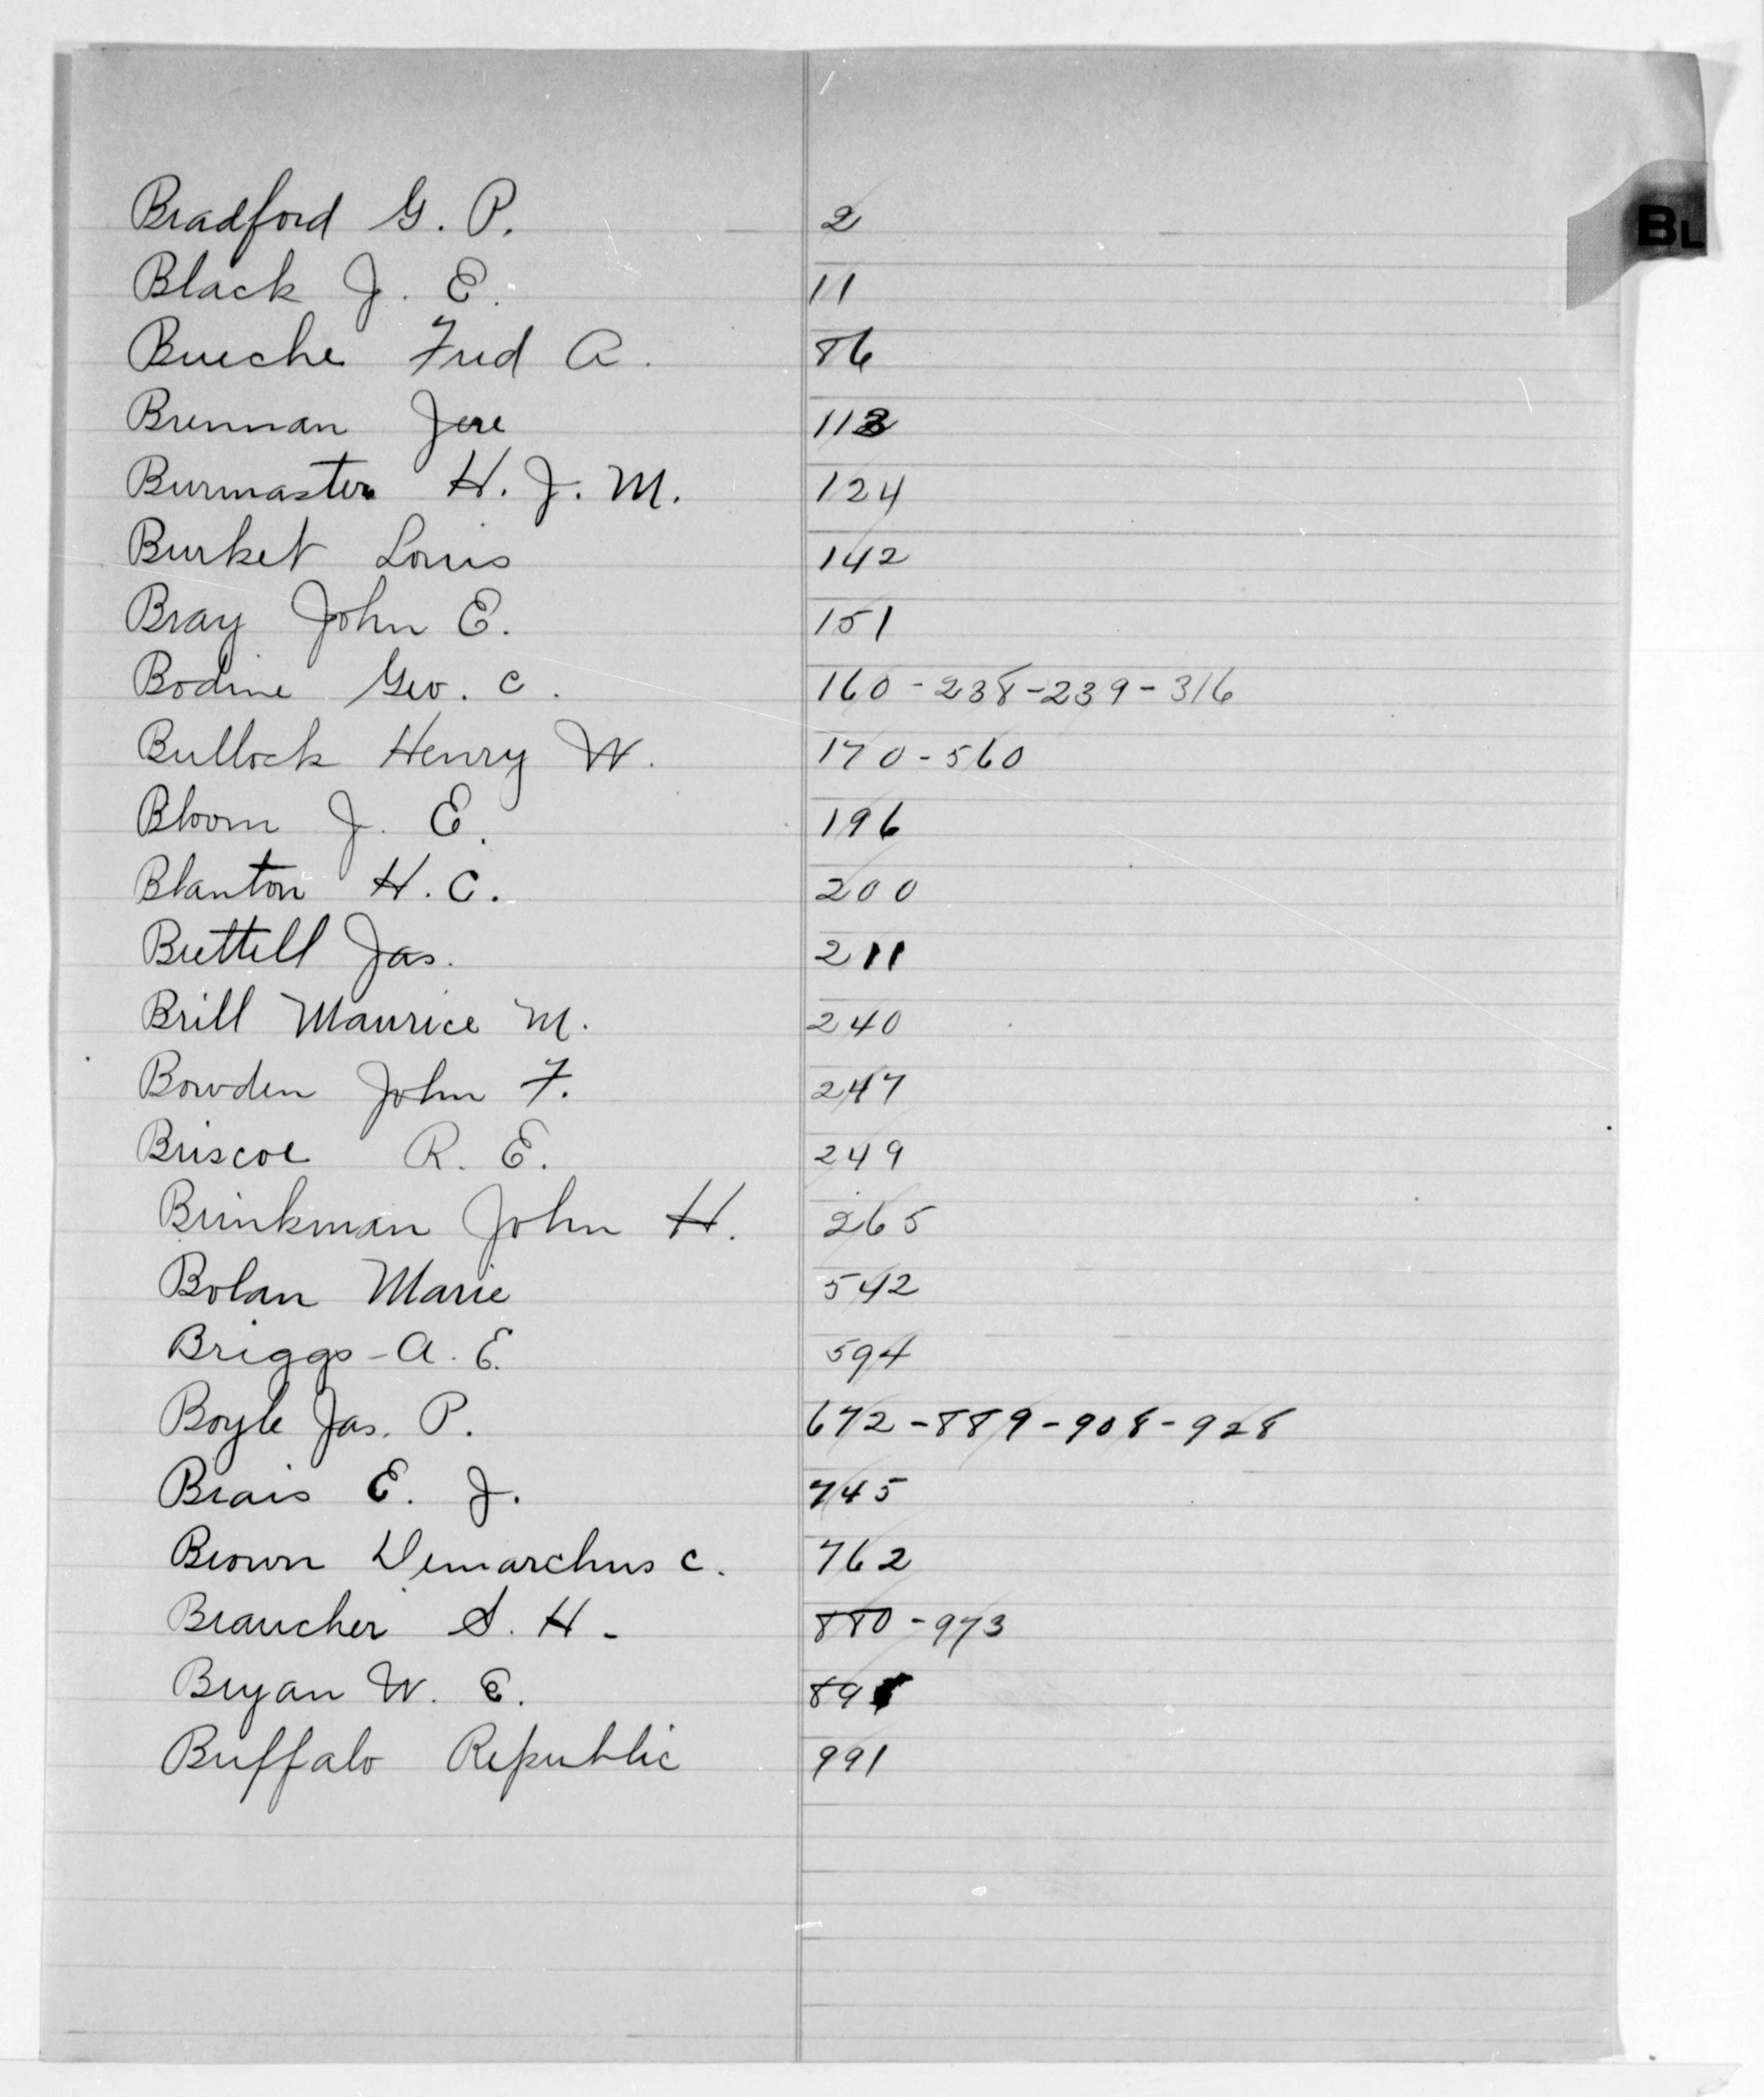 BL
Bradford G. P. 2
Black J. E. 11
Bueche Fred A. 86
Brennan Jere 113
Burmaster H. J. M. 124
Burket Louis 142
Bray John E. 151
Bodine Geo. C. 160-238-239-316
Bullock Henry W. 170-560
Bloom J. E. 196
Blanton H. C. 200
Brettell Jas. 211
Brill Maurice M. 240
Bowden John F. 247
Briscoe R. E. 249
Brinkman John H. 265
Bolan Marie 542
Briggs - A. E. 594
Boyle Jas. P. 672-889-908-928
Brais E. J. 745
Brown Demarchus C. 762
Braucher S. H. 880-973
Bryan W. E.
Buffalo Republic 991